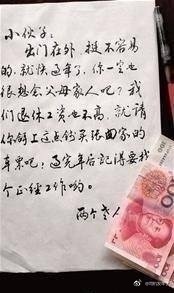 小伙子：
出门在外，挺不容易
的，就快过年了，你一定也
很想念父母家人吧？我
们退休工资也不高，就请
你拿上这点钱买张回家的
车票吧！过完年后记得要找
个正经工作哟。
两个老人
100